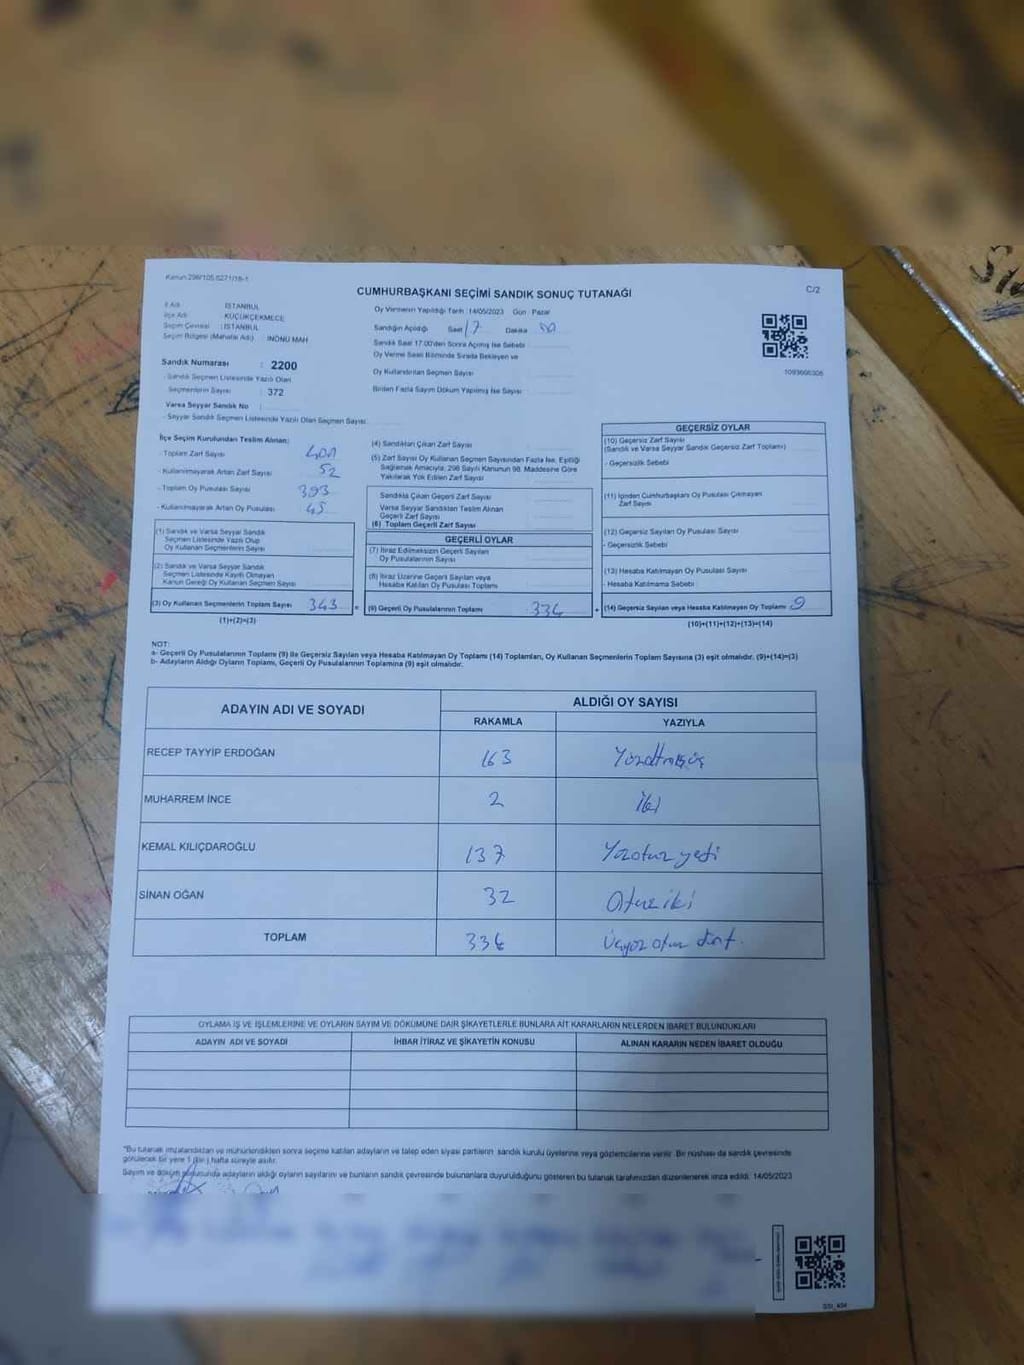 Kanun 298/105.6271/18-1
CUMHURBAŞKANI SEÇİMİ SANDIK SONUÇ TUTANAĞI
C/2
İl Adı : İSTANBUL
İlçe Adı : KÜÇÜKÇEKMECE
Seçim Çevresi : İSTANBUL
Seçim Bölgesi (Mahalle Adı) : İNÖNÜ MAH
Sandık Numarası : 2200
- Sandık Seçmen Listesinde Yazılı Olan
Seçmenlerin Sayısı : 372
Varsa Seyyar Sandık No :
- Seyyar Sandık Seçmen Listesinde Yazılı Olan Seçmen Sayısı
Oy Vermenin Yapıldığı Tarih : 14/05/2023 Gün : Pazar
Sandığın Açıldığı Saat 17 Dakika
Sandık Saat 17.00'den Sonra Açılmış İse Sebebi
Oy Verme Saati Bitiminde Sırada Bekleyen ve
Oy Kullandırılan Seçmen Sayısı
Birden Fazla Sayım Döküm Yapılmış İse Sayısı
1093606306
İlçe Seçim Kurulundan Teslim Alınan;
- Toplam Zarf Sayısı 401
- Kullanılmayarak Artan Zarf Sayısı 52
- Toplam Oy Pusulası Sayısı 393
- Kullanılmayarak Artan Oy Pusulası 45
(1) Sandık ve Varsa Seyyar Sandık
Seçmen Listesinde Yazılı Olup
Oy Kullanan Seçmenlerin Sayısı
(2) Sandık ve Varsa Seyyar Sandık
Seçmen Listesinde Kayıtlı Olmayan
Kanun Gereği Oy Kullanan Seçmen Sayısı
(3) Oy Kullanan Seçmenlerin Toplam Sayısı 343 =
(1)+(2)=(3)
(4) Sandıktan Çıkan Zarf Sayısı
(5) Zarf Sayısı Oy Kullanan Seçmen Sayısından Fazla İse, Eşitliği
Sağlamak Amacıyla, 298 Sayılı Kanunun 98. Maddesine Göre
Yakılarak Yok Edilen Zarf Sayısı
Sandıkta Çıkan Geçerli Zarf Sayısı
Varsa Seyyar Sandıktan Teslim Alınan
Geçerli Zarf Sayısı
(6) Toplam Geçerli Zarf Sayısı
GEÇERLİ OYLAR
(7) İtiraz Edilmeksizin Geçerli Sayılan
Oy Pusulalarının Sayısı
(8) İtiraz Üzerine Geçerli Sayılan veya
Hesaba Katılan Oy Pusulası Toplamı
(9) Geçerli Oy Pusulalarının Toplamı 334 +
GEÇERSİZ OYLAR
(10) Geçersiz Zarf Sayısı
(Sandık ve Varsa Seyyar Sandık Geçersiz Zarf Toplamı)
- Geçersizlik Sebebi
(11) İçinden Cumhurbaşkanı Oy Pusulası Çıkmayan
Zarf Sayısı
(12) Geçersiz Sayılan Oy Pusulası Sayısı
- Geçersizlik Sebebi
(13) Hesaba Katılmayan Oy Pusulası Sayısı
- Hesaba Katılmama Sebebi
(14) Geçersiz Sayılan veya Hesaba Katılmayan Oy Toplamı 9
(10)+(11)+(12)+(13)=(14)
NOT:
a- Geçerli Oy Pusulalarının Toplamı (9) ile Geçersiz Sayılan veya Hesaba Katılmayan Oy Toplamı (14) Toplamları, Oy Kullanan Seçmenlerin Toplam Sayısına (3) eşit olmalıdır. (9)+(14)=(3)
b- Adayların Aldığı Oyların Toplamı, Geçerli Oy Pusulalarının Toplamına (9) eşit olmalıdır.
ADAYIN ADI VE SOYADI
ALDIĞI OY SAYISI
RAKAMLA YAZIYLA
RECEP TAYYİP ERDOĞAN 163 Yüzaltmışüç
MUHARREM İNCE 2 İki
KEMAL KILIÇDAROĞLU 137 Yüzotuz yedi
SİNAN OĞAN 32 Otuz iki
TOPLAM 334 Üçyüz otuz dört.
OYLAMA İŞ VE İŞLEMLERİNE VE OYLARIN SAYIM VE DÖKÜMÜNE DAİR ŞİKAYETLERLE BUNLARA AİT KARARLARIN NELERDEN İBARET BULUNDUKLARI
ADAYIN ADI VE SOYADI İHBAR İTİRAZ VE ŞİKAYETİN KONUSU ALINAN KARARIN NEDEN İBARET OLDUĞU
"Bu tutanak imzalandıktan ve mühürlendikten sonra seçime katılan adayların ve talep eden siyasi partilerin sandık kurulu üyelerine veya gözlemcilerine verilir. Bir nüshası da sandık çevresinde
görülecek bir yere 1 (Bir) hafta süreyle asılır.
Sayım ve döküm sonucunda adayların aldığı oyların sayılarını ve bunların sandık çevresinde bulunanlara duyurulduğunu gösteren bu tutanak tarafımızdan düzenlenerek imza edildi. 14/05/2023